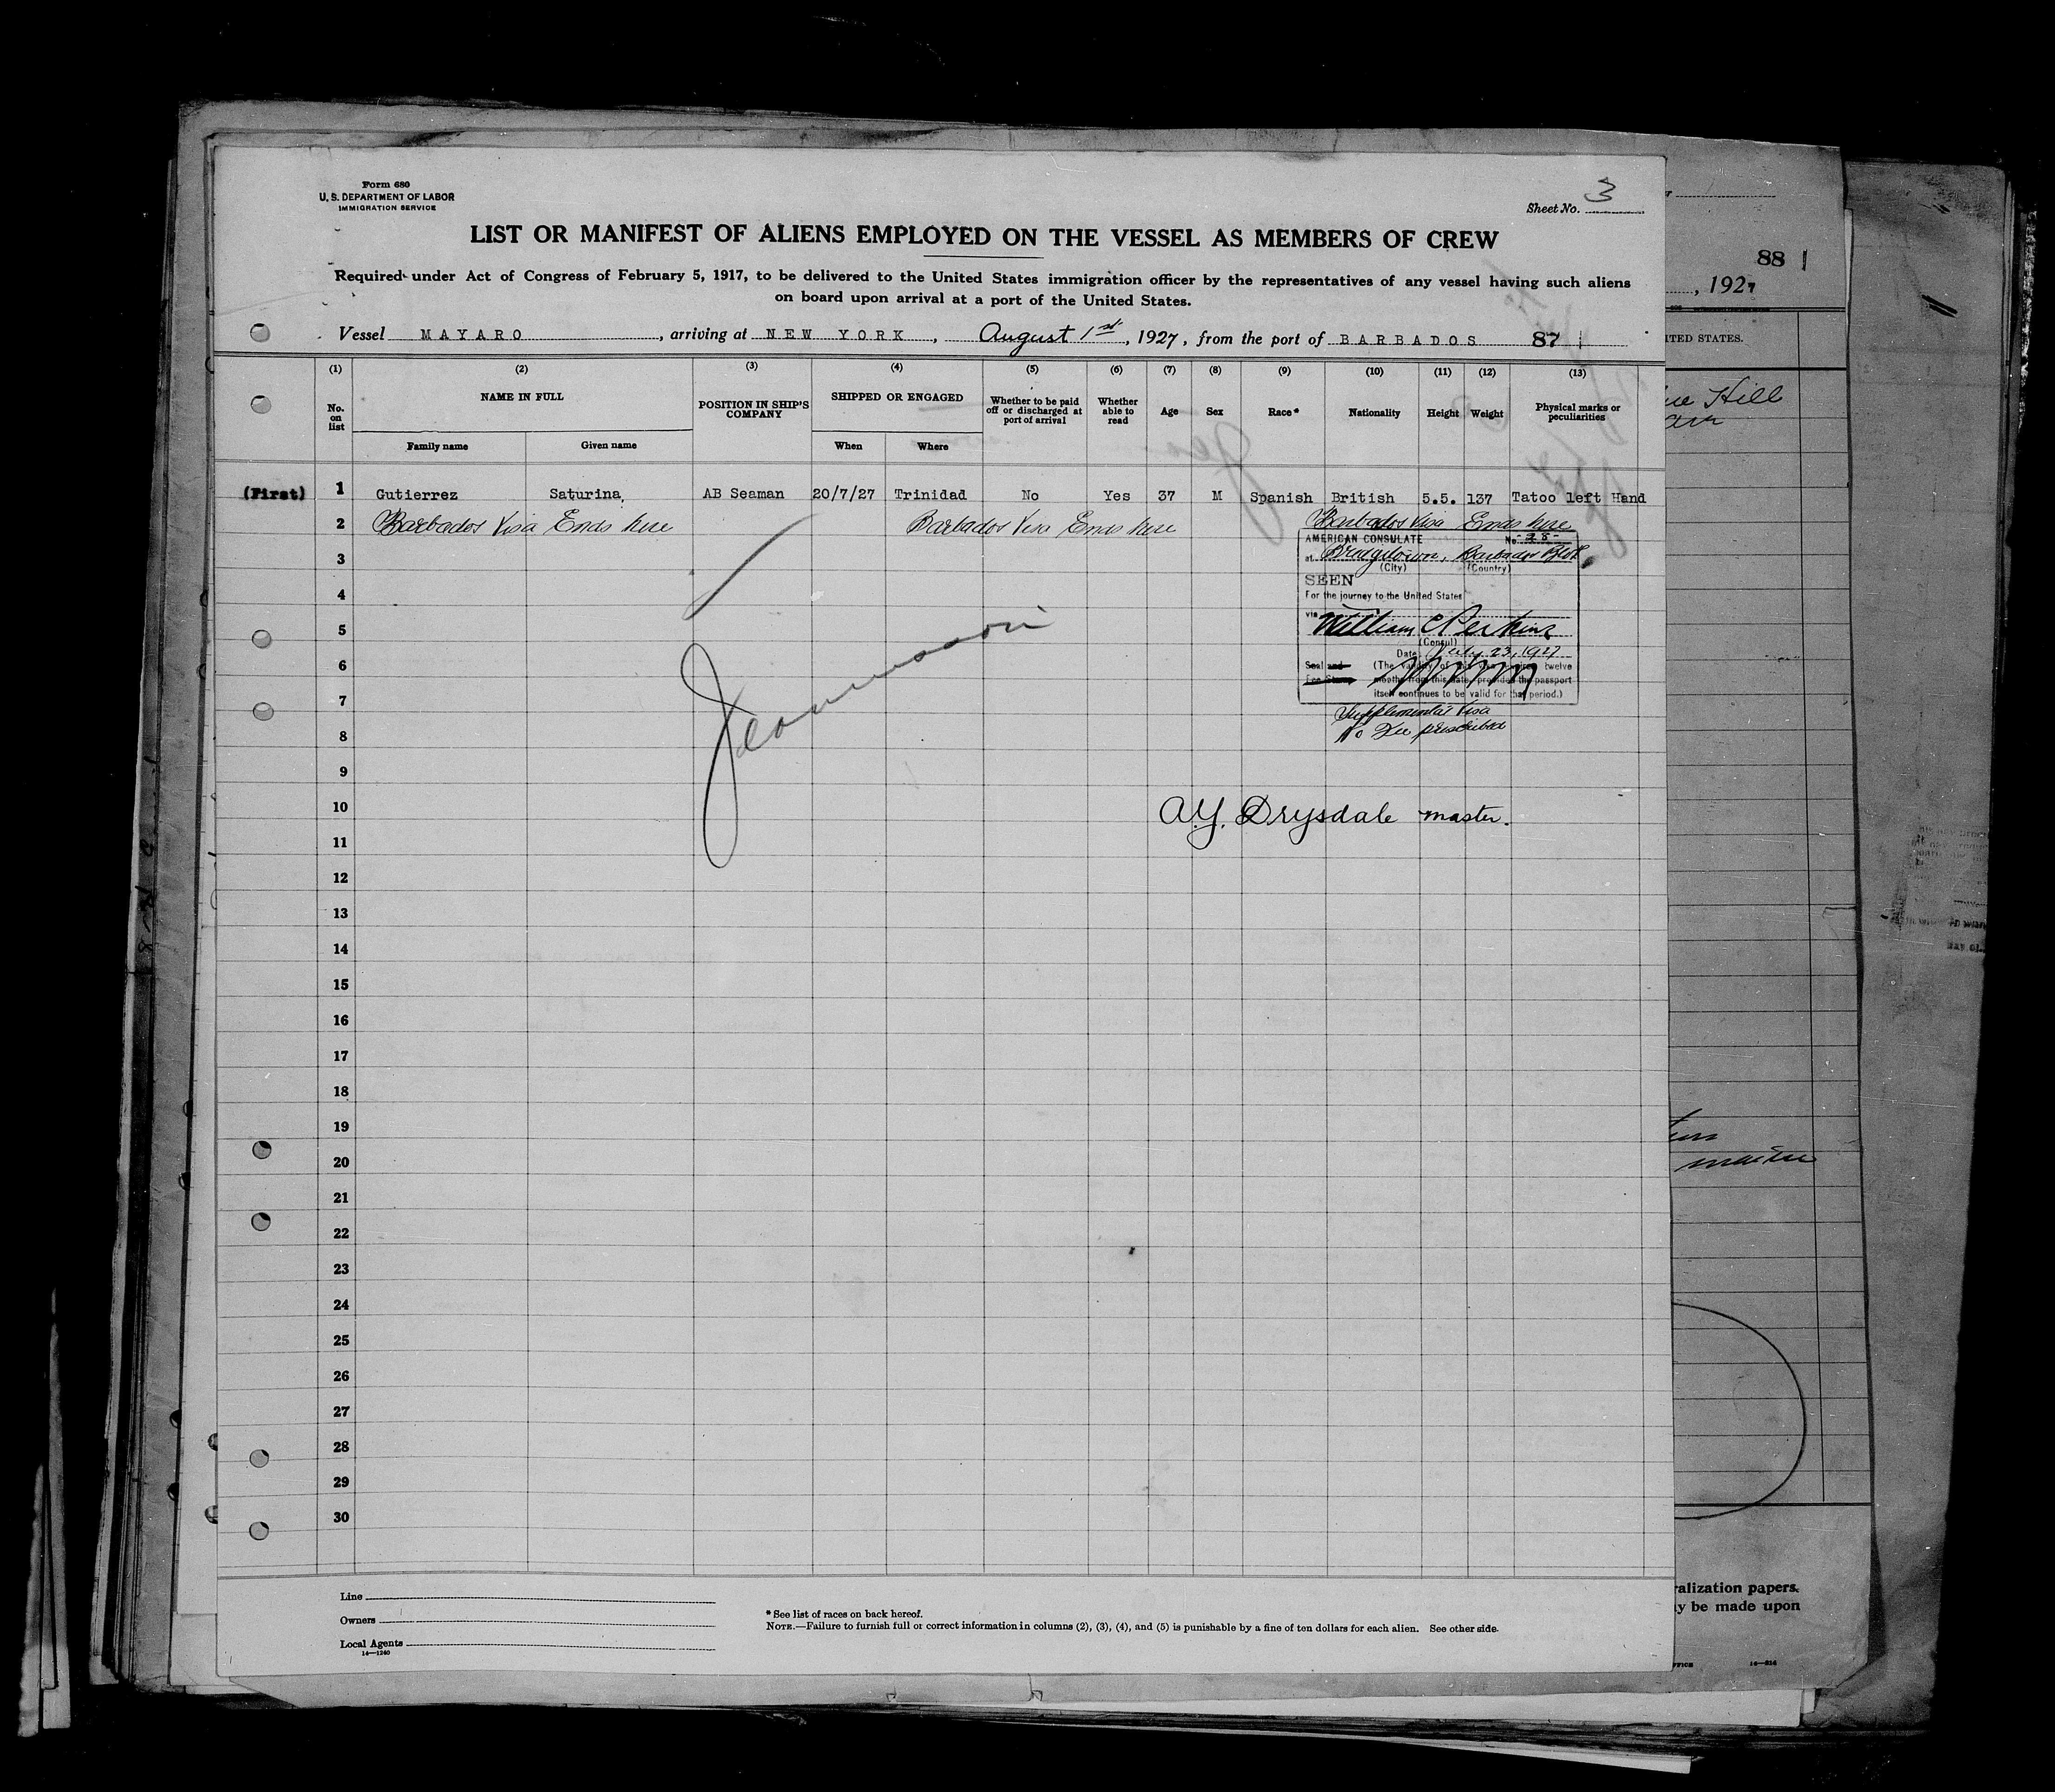 Form 680
U. S. DEPARTMENT OF LABOR
IMMIGRATION SERVICE
Sheet No. 3
LIST OR MANIFEST OF ALIENS EMPLOYED ON THE VESSEL AS MEMBERS OF CREW
Required under Act of Congress of February 5, 1917, to be delivered to the United States immigration officer by the representatives of any vessel having such aliens
on board upon arrival at a port of the United States.
Vessel MAYARO, arriving at NEW YORK, August 1st, 1927, from the port of BARBADOS 87
(1) (2) (3) (4) (5) (6) (7) (8) (9) (10) (11) (12) (13)
No. on list
NAME IN FULL
Family name
Given name
POSITION IN SHIP'S COMPANY
SHIPPED OR ENGAGED
When
Where
Whether to be paid off or discharged at port of arrival
Whether able to read
Age
Sex
Race*
Nationality
Height
Weight
Physical marks or peculiarities
(First) 1 Gutierrez Saturina, AB Seaman 20/7/27 Trinidad No Yes 37 M Spanish British 5.5. 137 Tatoo left Hand
2 Barbados Visa Ends here Barbados Visa Ends here Barbados Visa Ends here
AMERICAN CONSULATE No. -38-
at Bridgetown, Barbados BWI.
(City) (Country)
SEEN
For the journey to the United States
via
William C Perkins
(Consul)
Date July 23, 1927
Seal and (The validity of this visa expires twelve
Fee Stamp months from this date, provided the passport
itself continues to be valid for that period.)
Supplemental Visa
No Fee prescribed
3
4
5
6
7
8
9
10
A.Y. Drysdale master.
11
12
13
14
15
16
17
18
19
20
21
22
23
24
25
26
27
28
29
30
Line
Owners
Local Agents
14—1240
* See list of races on back hereof.
NOTE.—Failure to furnish full or correct information in columns (2), (3), (4), and (5) is punishable by a fine of ten dollars for each alien. See other side.
88
, 1927
ITED STATES.
Hill
ralization papers.
ay be made upon
FFICE